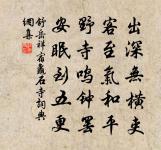 出深無橫吏
客至氣和平
野寺鳴钟罷
安眠到五更
舒岳祥宿臺石寺詞典
網集